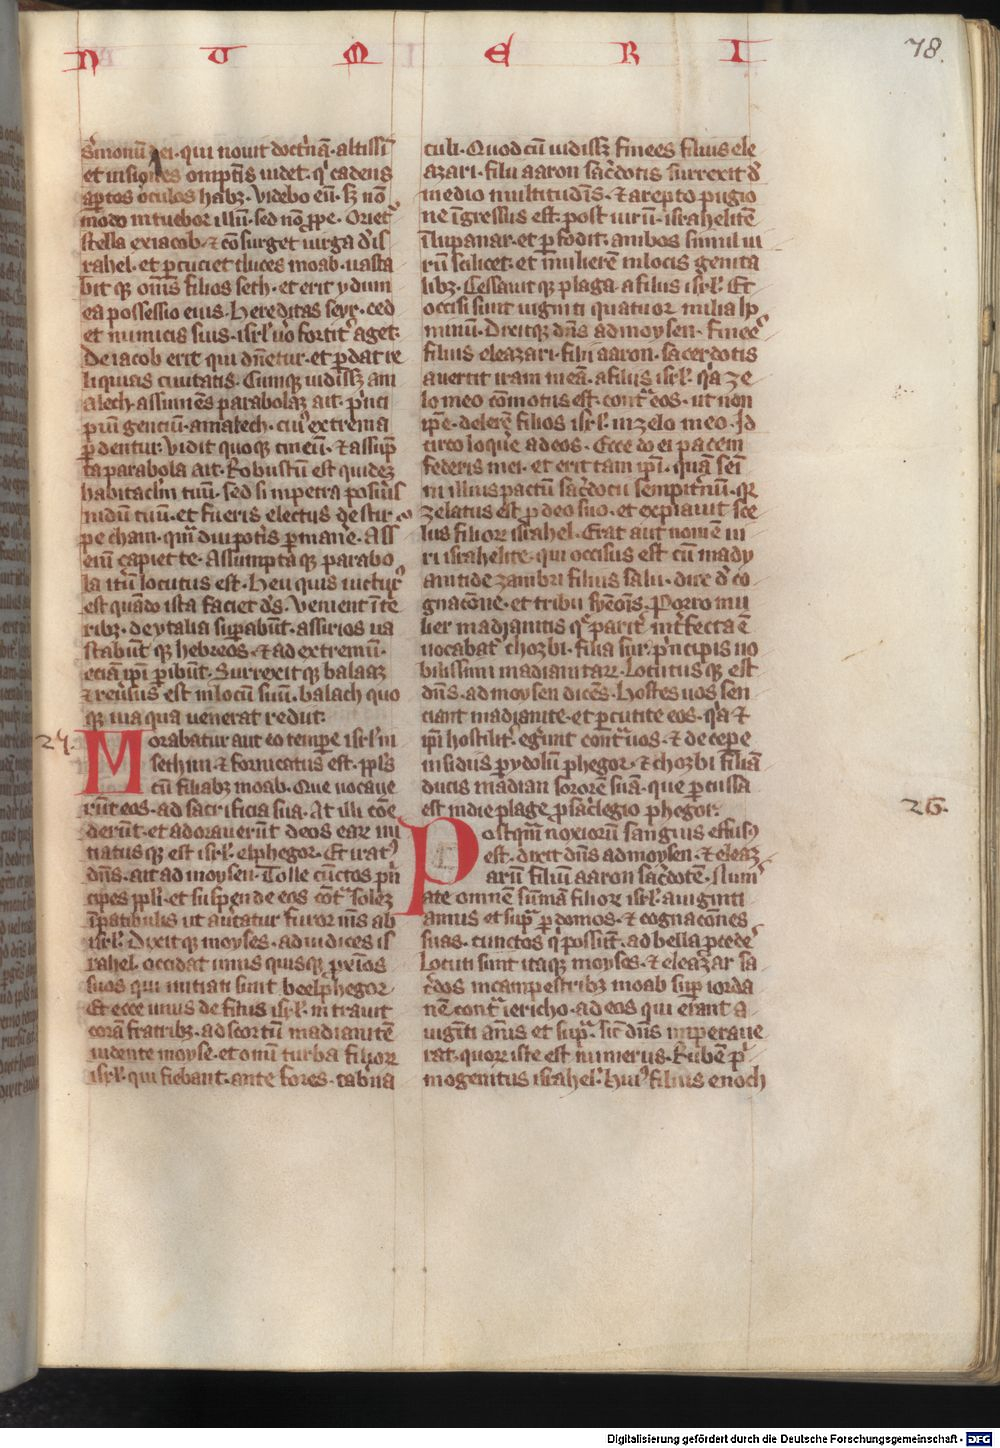 N U M E R I
78.
sermonū dei. qui novit doctnā. altissi
et visiones omptis videt. qi cadens
aptos oculos habz. Videbo eū. sz nō
modo intuebor illū. sed nō ppe. Oriet
stella ex iacob. et cōsurget uirga dis
rahel. et pcuciet duces moab. uasta
bit qz om̄s filios seth. et erit ydum
ea possessio eius. Hereditas seyr. ced
et inimicis suis. isrl' uo fortit aget.
De iacob erit qui dn̄etur. et pdat re
liquias ciuitatis. Cumqz uidissz am
alech. assumēs parabolaz ait. pnci
piū gentium. amalech. cui' extrema
pdentur. Vidit quoqz cineū. et assūp
ta parabola ait. Robustū est quidez
habitaclm tuū. sed si in petra posuis
nidū tuū. et fueris electus de stir
pe chain. qm̄ diu potis pmane. Ass
eni capiet te. Assumpta qz parabo
la itū locutus est. Heu quis uictur'
est quādo ista faciet ds. Venient ī te
ribz. de ytalia supabūt. assirios ua
stabūt qz hebreos. et ad extremū.
eciā ipi pibūt. Surrexit qz balaaz
et reusus est in locū suū. balach quo
qz uia qua uenerat rediit.
24.
Morabatur aut eo tempe isrl' in
sethim. et fornicatus est. ppls
cū filiabz moab. Que uocaue
rūt eos. ad sacrificia sua. At illi cōe
derūt. et adorauerūt deos earz ini
tiatus qz est isrl'. elphegor. Et irat'
dns. ait ad moysen. Tolle cūctos pn
cipes ppli. et suspende eos cōt solez
ī patibulis ut autatur furor m̄s ab
isrl'. Dixit qz moyses. ad iudices is
rahel. occidat unus quisqz pxios
suos qui initiati sunt beelphegor
Et ecce unus de filiis isrl'. intrauit
corā fratribz. ad scortū madianitē
uidente moyse. et omī turba filiorz
isrl'. qui flebant. ante fores. tabna
culi. Quod cū uidissz finees filius ele
azari. filii aaron sacdotis surrexit d
medio multitudīs. et arepto pugio
ne īgressus est. post uirū. israhelitē
ī lupanar. et pfodit. ambos simul ui
rū scilicet. et mulierē in locis genita
libz. Cessauit qz plaga a filiis isrl'. Et
occisi sunt uiginti quatuor milia ho
minū. Dixitqz dns ad moysen. finees
filius eleazari. filii aaron. sacerdotis
auertit iram meā. a filiis isrl'. qa ze
lo meo cōmotus est. cont eos. ut non
ipe. delerē filios isrl'. in zelo meo. Id
circo loqūe ad eos. Ecce do ei pacem
federis mei. et erit tam ipi. quā semi
ni illius pactū sacdocii sempitnū. qz
zelatus est p deo suo. et expiauit sce
lus filiorz israhel. Erat aut nomē ui
ri israhelite. qui occisus est cū mady
anitide zambri filius salu. dux d co
gnatōne. et tribu symeōis. Porro mu
lier madianitis q parit intfecta ē
uocabat chozbi. filia sur. pncipis no
bilissimi madianitarz. Locutus qz est
dns. ad moysen dicēs. Hostes uos sen
ciant madianite. et pcutite eos. qa et
ipi hostilit. egūnt cont uos. et decepe
insidiis p ydolū phegor. et chozbi filiā
ducis madian sororē suā. que pcussa
est in die plage p sacilegio phegor.
26.
Postqm̄ noxiorū sanguis effus'
est. dixit dns ad moysen. et eleaz
arū filiū aaron sacdotē. Num
ate omnē summā filiorz isrl'. a uiginti
annis et sup p domos. et cognacōnes
suas. cunctos q possūt. ad bella pcede
Locuti sunt itaqz moyses. et eleazar sa
cdos in campestribz moab sup iorda
nē cont iericho. ad eos qui erant a
uigīti annis et sup. sic dns imperaue
rat. quorz iste est numerus. Rubē p
mogenitus israhel. hui' filius enoch
Digitalisierung gefördert durch die Deutsche Forschungsgemeinschaft - DFG